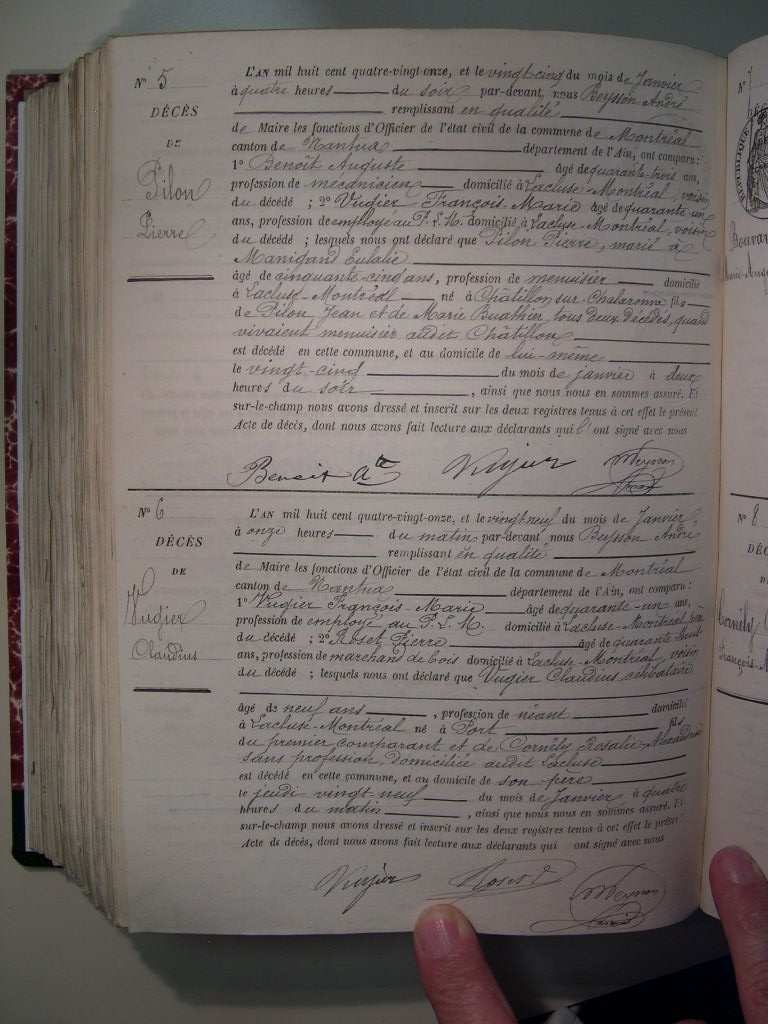 N° 5
DÉCÈS
DE
Pilon
Pierre
L'AN mil huit cent quatre-vingt-onze, et le vingt cinq du mois de Janvier
à quatre heures du soir par-devant, nous Beysson André
remplissant en qualité
de Maire les fonctions d'Officier de l'état civil de la commune de Montréal
canton de Nantua département de l'Ain, ont comparu :
1° Benoît Auguste âgé de quarante trois ans,
profession de mécanicien domicilié à Lacluse-Montréal, voisin
du décédé ; 2° Vugier François-Marie âgé de quarante un
ans, profession de employé au P. L. M. domicilié à Lacluse-Montréal, voisin
du décédé ; lesquels nous ont déclaré que Pilon Pierre, marié à
Manigand Eulalie
âgé de cinquante-cinq ans, profession de menuisier domicilié
à Lacluse-Montréal né à Châtillon-sur-Chalaronne fils
de Pilon Jean et de Marie Buathier, tous deux décédés, quand
vivaient menuisier audit Châtillon
est décédé en cette commune, et au domicile de lui-même
le vingt-cinq du mois de janvier à deux
heures du soir , ainsi que nous nous en sommes assuré. Et
sur-le-champ nous avons dressé et inscrit sur les deux registres tenus à cet effet le présent
Acte de décès, dont nous avons fait lecture aux déclarants qui l' ont signé avec nous
Benoit Ate Vugier
N° 6
DÉCÈS
DE
Vugier
Claudius
L'AN mil huit cent quatre-vingt-onze, et le vingt neuf du mois de Janvier
à onze heures du matin par-devant nous Beysson André
remplissant en qualité
de Maire les fonctions d'Officier de l'état civil de la commune de Montréal
canton de Nantua département de l'Ain, ont comparu :
1° Vugier François-Marie âgé de quarante-un ans,
profession de employé au P. L. M. domicilié à Lacluse-Montréal
du décédé ; 2° Roset Pierre âgé de quarante huit
ans, profession de marchand de bois domicilié à Lacluse-Montréal, voisin
du décédé ; lesquels nous ont déclaré que Vugier Claudius célibataire
âgé de neuf ans , profession de néant domicilié
à Lacluse-Montréal né à Port fils
du premier comparant et de Cornily Rosalie
sans profession domiciliée audit Lacluse
est décédé en cette commune, et au domicile de son père
le jeudi vingt-neuf du mois de Janvier à quatre
heures du matin , ainsi que nous nous en sommes assuré. Et
sur-le-champ nous avons dressé et inscrit sur les deux registres tenus à cet effet le présent
Acte de décès, dont nous avons fait lecture aux déclarants qui ont signé avec nous
Vugier Roset
N°
N° 8